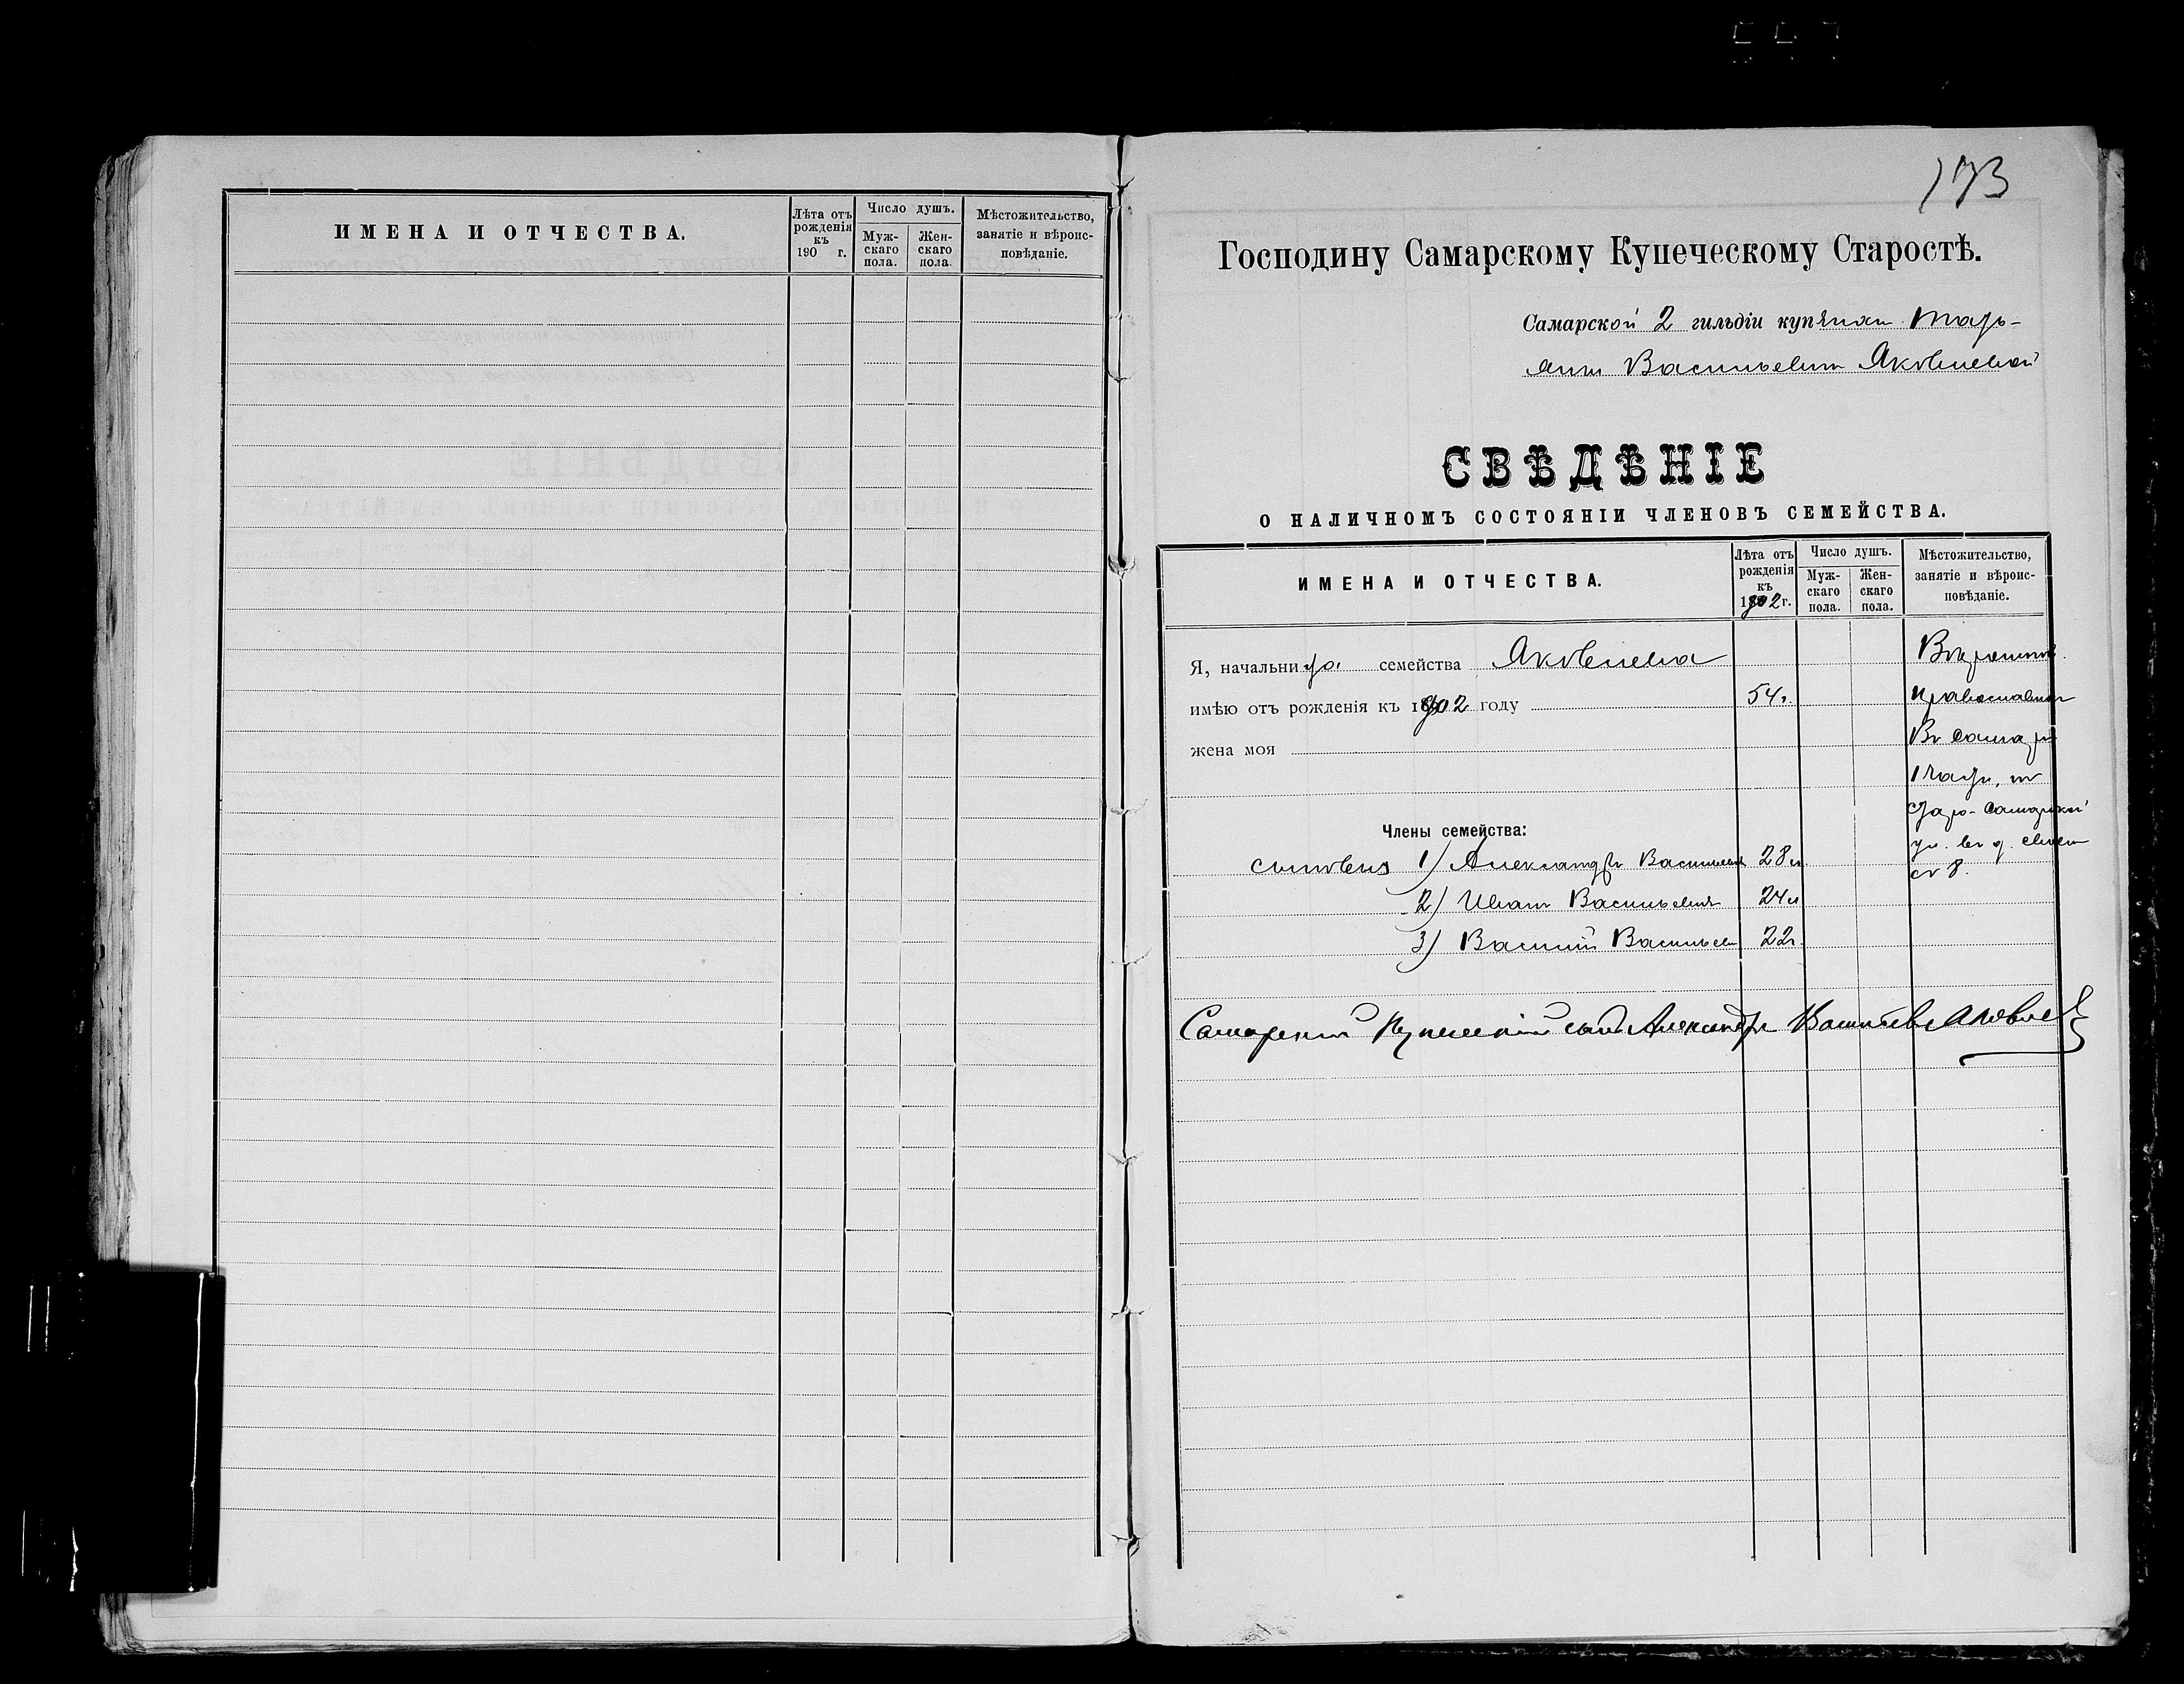 ИМЕНА И ОТЧЕСТВА.
Лѣта отъ рожденія къ 190 г.
Число душъ.
Мужскаго пола.
Женскаго пола.
Мѣстожительство, занятіе и вѣроисповѣданіе.
173
Господину Самарскому Купеческому Старостѣ.
Самарской 2 гильдіи купчихи Марь-
яны Васильевны Яковлевой
СВѢДѢНІЕ
О НАЛИЧНОМЪ СОСТОЯНІИ ЧЛЕНОВЪ СЕМЕЙСТВА.
ИМЕНА И ОТЧЕСТВА.
Лѣта отъ рожденія къ 1902 г.
Число душъ.
Мужскаго пола.
Женскаго пола.
Мѣстожительство, занятіе и вѣроисповѣданіе.
Я, начальница семейства Яковлева
имѣю отъ рожденія къ 1902 году 54 г.
православнаго
жена моя
Въ Самарѣ
1 части, по
Старо-Самарской
ул. въ д. своем
Члены семейства:
сыновья 1) Александръ Васильевъ 28 л.
№ 8.
2) Иванъ Васильевъ 24 л
3) Василій Васильев 22 г
Самарский Купеческій сынъ Александръ Васильевъ Яковлев